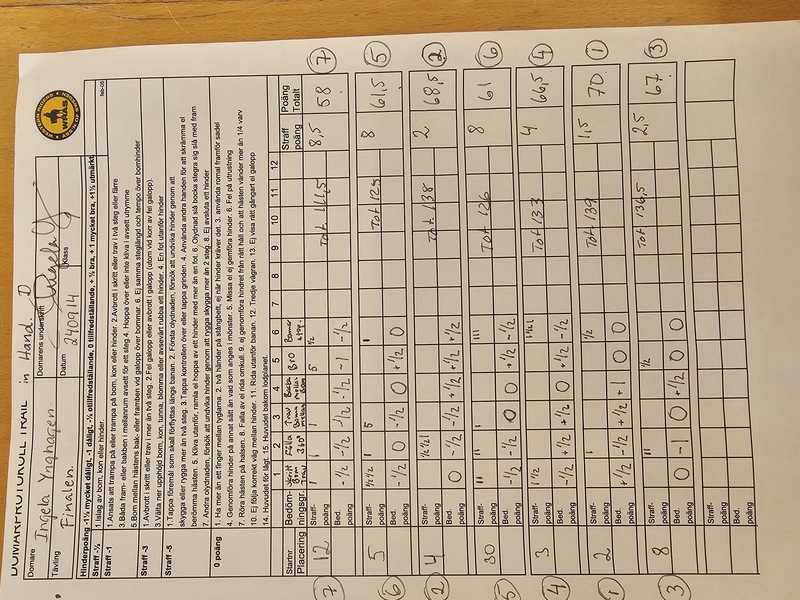 DOMARPROTOKOLL TRAIL in Hand. D
Domare
Ingela Ynghagen
Domarens underskrift
Tävling
Finalen.
Datum
240914
Klass
WRAS
Hinderpoäng -1½ mycket dåligt, -1 dåligt, -½ otillfredställande, 0 tillfredställande, + ½ bra, +1 mycket bra, +1½ utmärkt
feb-05
Straff -½ 1.Islag av bom, kon eller hinder.
Straff -1 1.Ansats att trampa på eller trampa på bom, kon eller hinder. 2.Avbrott i skritt eller trav i två steg eller färre
3.Båda fram- eller bakben i mellanrum avsett för ett steg 4. Hoppa över eller inte kliva i avsett utrymme
5.Bom mellan hästens bak- eller framben vid galopp över bommar. 6. Ej samma steglängd och tempo över bomhinder
Straff -3 1.Avbrott i skritt eller trav i mer än två steg. 2.Fel galopp eller avbrott i galopp (utom vid korr av fel galopp).
3.Välta ner upphöjd bom, kon, tunna, blomma eller avsevärt rubba ett hinder. 4. En fot utanför hinder
Straff -5 1.Tappa föremål som skall förflyttas längs banan. 2. Första olydnaden, försök att undvika hinder genom att
skygga eller rygga mer än två steg. 3.Tappa kontrollen över eller tappa grinden. 4. Använda andra handen för att skrämma el
berömma hästen. 5. Kliva utanför, ramla el hoppa av ett hinder med mer än en fot. 6. Olydnad slå bocka stegra sig slå med fram
7. Andra olydnaden, försök att undvika hinder genom att rygga skygga mer än 2 steg. 8. Ej avsluta ett hinder
0 poäng 1. Ha mer än ett finger mellan tyglarna. 2. två händer på stångbett, ej när hinder kräver det. 3. använda romal framför sadel
4. Genomföra hinder på annat sätt än vad som anges i mönster. 5. Missa el ej gemföra hinder. 6. Fel på utrustning
7. Röra hästen på halsen. 8. Falla av el rida omkull. 9. ej genomföra hindret från rätt håll och att hästen vänder mer än 1/4 varv
10. Ej följa korrekt väg mellan hinder. 11. Rida utanför banan. 12. Tredje vägran. 13. Ej visa rätt gångart el galopp
14. Huvudet för lågt. 15. Huvudet bakom lodplanet.
Startnr Bedöm- 2 3 4 5 6 7 8 9 10 11 12 Straff Poäng
Placering ningsgr. 360° Bro poäng Totalt
12 Straff-poäng Tot 111,5 8,5 58 7
7 Bed. -½ -½ -½ -½ -1 -½
5 Straff-poäng Tot 125 8 61,5 5
6 Bed. -½ 0 -½ 0 +½ 0
4 Straff-poäng Tot 138 2 68,5 2
2 Bed. 0 -½ +½ +½ +½ +½
30 Straff-poäng Tot 126 8 61 6
5 Bed. -½ -½ 0 0 +½ -½
3 Straff-poäng Tot 133 4 66,5 4
4 Bed. -½ +½ +½ 0 +½ -½
2 Straff-poäng Tot 139 1,5 70 1
1 Bed. +½ -½ +½ +1 0 0
8 Straff-poäng Tot 136,5 2,5 67 3
3 Bed. 0 - 0 +½ 0 0
Straff-poäng
Bed.
Straff-poäng